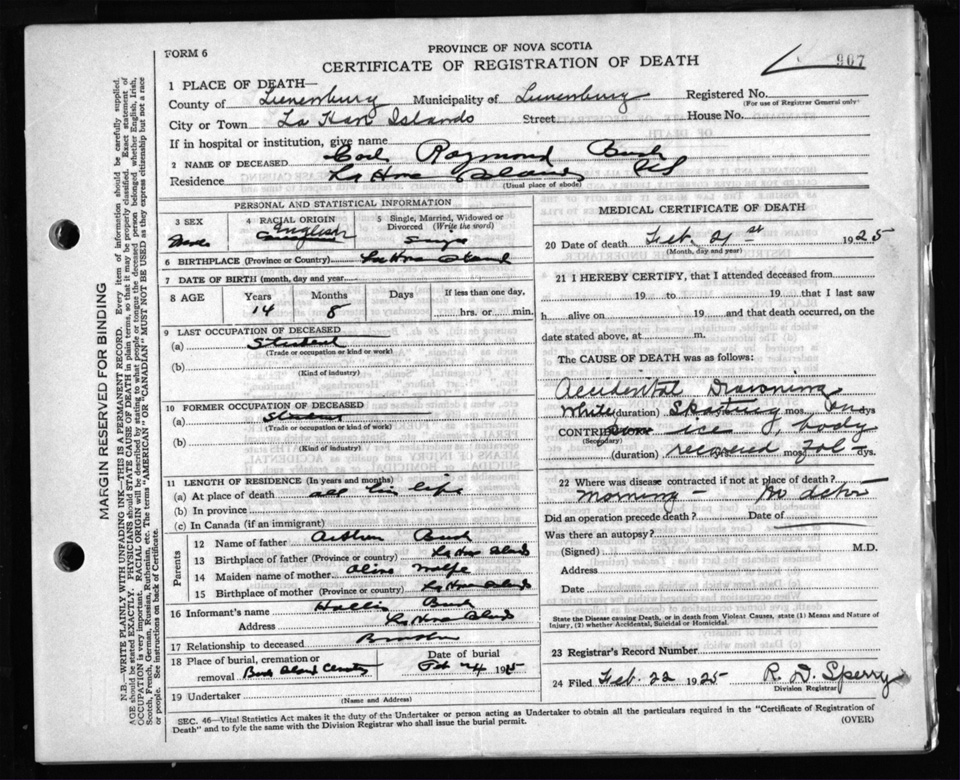 FORM 6
PROVINCE OF NOVA SCOTIA
CERTIFICATE OF REGISTRATION OF DEATH
907
1 PLACE OF DEATH—
County of Lunenburg Municipality of Lunenburg Registered No.
(For use of Registrar General only)
City or Town La Have Islands Street House No.
If in hospital or institution, give name
2 NAME OF DECEASED Raymond Bush
Residence La Have Islands NS
(Usual place of abode)
PERSONAL AND STATISTICAL INFORMATION
3 SEX
Male
4 RACIAL ORIGIN
English
5 Single, Married, Widowed or Divorced (Write the word)
Single
6 BIRTHPLACE (Province or Country) La Have Island
7 DATE OF BIRTH (month, day and year)
8 AGE Years Months Days If less than one day,
14 8 hrs. or min.
9 LAST OCCUPATION OF DECEASED
(a) Student
(Trade or occupation or kind or work)
(b)
(Kind of industry)
10 FORMER OCCUPATION OF DECEASED
(a) Student
(Trade or occupation or kind or work)
(b)
(Kind of industry)
11 LENGTH OF RESIDENCE (In years and months)
(a) At place of death all his life
(b) In province
(c) In Canada (if an immigrant)
Parents
12 Name of father Arthur Bush
13 Birthplace of father (Province or country) La Have Island
14 Maiden name of mother Wolfe
15 Birthplace of mother (Province or country) La Have Islands
16 Informant's name Hallis Bush
Address La Have Islands
17 Relationship to deceased Brother
18 Place of burial, cremation or removal Bush Island Date of burial Feb 24 1925
19 Undertaker
(Name and Address)
MEDICAL CERTIFICATE OF DEATH
20 Date of death Feb 21st 1925
(Month, day and year)
21 I HEREBY CERTIFY, that I attended deceased from
19 to 19 that I last saw
h alive on 19 and that death occurred, on
date stated above, at m.
The CAUSE OF DEATH was as follows:
Accidental Drowning
While (duration) Skating mos. on dys
CONTRIBUTORY ice, body
(Secondary)
(duration) recovered mos. dys.
22 Where was disease contracted if not at place of death?
morning — No doctor
Did an operation precede death? Date of
Was there an autopsy?
(Signed) M.D.
Address
Date
State the Disease causing Death, or in death from Violent Causes, state (1) Means and Nature of Injury, (2) whether Accidental, Suicidal or Homicidal.
23 Registrar's Record Number
24 Filed Feb. 22 1925 R. D. Sperry
Division Registrar
SEC. 46—Vital Statistics Act makes it the duty of the Undertaker or person acting as Undertaker to obtain all the particulars required in the "Certificate of Registration of
Death" and to fyle the same with the Division Registrar who shall issue the burial permit.
(OVER)
MARGIN RESERVED FOR BINDING
N.B.—WRITE PLAINLY WITH UNFADING INK—THIS IS A PERMANENT RECORD. Every item of information should be carefully supplied.
AGE should be stated EXACTLY. PHYSICIANS should STATE CAUSE OF DEATH in plain terms, so that it may be properly classified. Exact statement of
OCCUPATION is very important. RACIAL ORIGIN will be described by stating to what people or tongue the deceased person belonged whether English, Irish,
Scotch, French, German, Russian, Ruthenian, etc. The terms "AMERICAN" or "CANADIAN" MUST NOT BE USED as they express citizenship but not a race
or people. See instructions on back of Certificate.